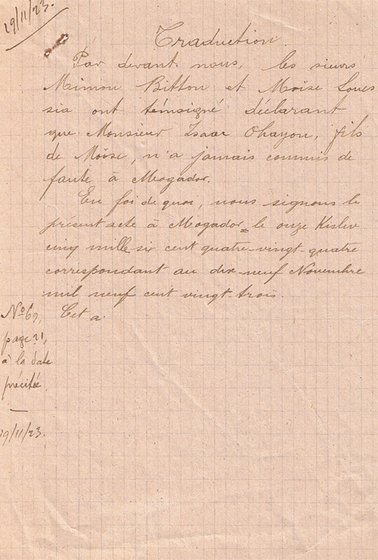 19/11/23.
Traduction
Par devant nous, les sieurs
Mimon Bitton et Moïse Loues
sia ont témoigné déclarant
que Monsieur Isaac Ohayon, fils
de Moïse, n'a jamais commis de
faute à Mogador.
En foi de quoi, nous signons le
présent acte à Mogador le onze Kislev
cinq mille six cent quatre-vingt-quatre
correspondant au dix neuf Novembre
mil neuf cent vingt trois.
N° 69, Ect a.
page 21,
à la date
précitée.
19/11/23.